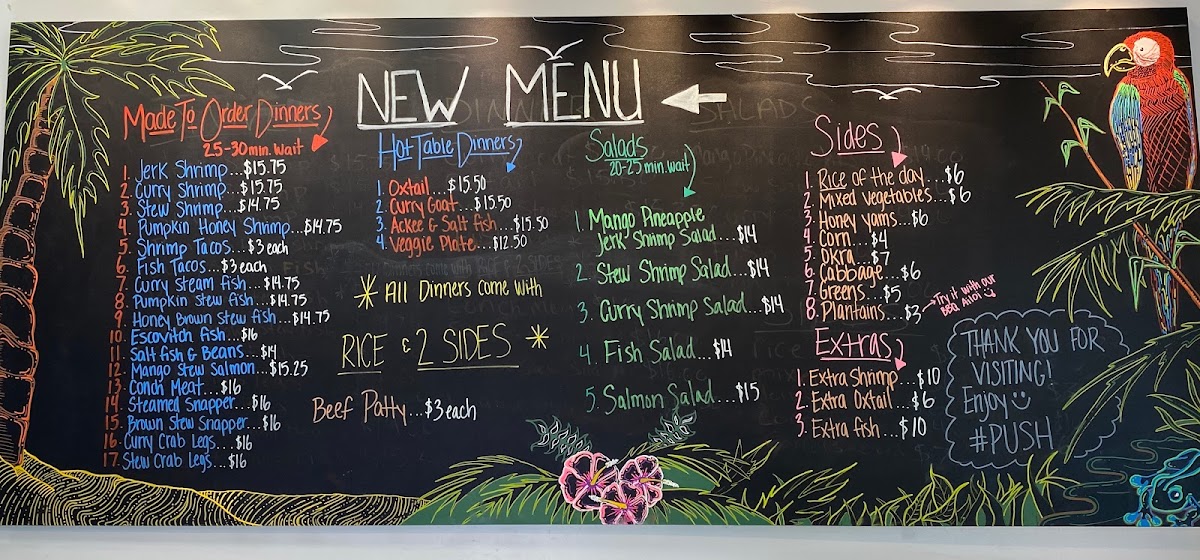 NEW MENU
Made To Order Dinners
25-30 min. wait
1. Jerk Shrimp...$15.75
2. Curry Shrimp...$15.75
3. Stew Shrimp...$14.75
4. Pumpkin Honey Shrimp...$14.75
5. Shrimp Tacos...$3 each
6. Fish Tacos...$3 each
7. Curry Steam fish...$14.75
8. Pumpkin stew fish...$14.75
9. Honey Brown stew fish...$14.75
10. Escovitch fish...$16
11. Salt fish & Beans...$14
12. Mango stew salmon...$15.25
13. Conch Meat...$16
14. Steamed Snapper...$16
15. Brown Stew Snapper...$16
16. Curry Crab Legs...$16
17. Stew Crab Legs...$16
Hot Table Dinners
1. Oxtail...$15.50
2. Curry Goat...$15.50
3. Ackee & Salt fish...$15.50
4. Veggie Plate...$12.50
* All Dinners come with
RICE & 2 SIDES *
Beef Patty...$3 each
Salads
20-25 min. wait
1. Mango Pineapple
Jerk Shrimp Salad...$14
2. Stew Shrimp Salad...$14
3. Curry Shrimp Salad...$14
4. Fish Salad...$14
5. Salmon Salad...$15
Sides
1. Rice of the day...$6
2. Mixed vegetables...$6
3. Honey yams...$6
4. Corn...$4
5. Okra...$7
6. Cabbage...$6
7. Greens...$5
8. Plantains...$3
Try it with our
BBQ Aioli
Extras
1. Extra Shrimp...$10
2. Extra Oxtail...$6
3. Extra fish...$10
THANK YOU FOR
VISITING!
Enjoy
#PUSH